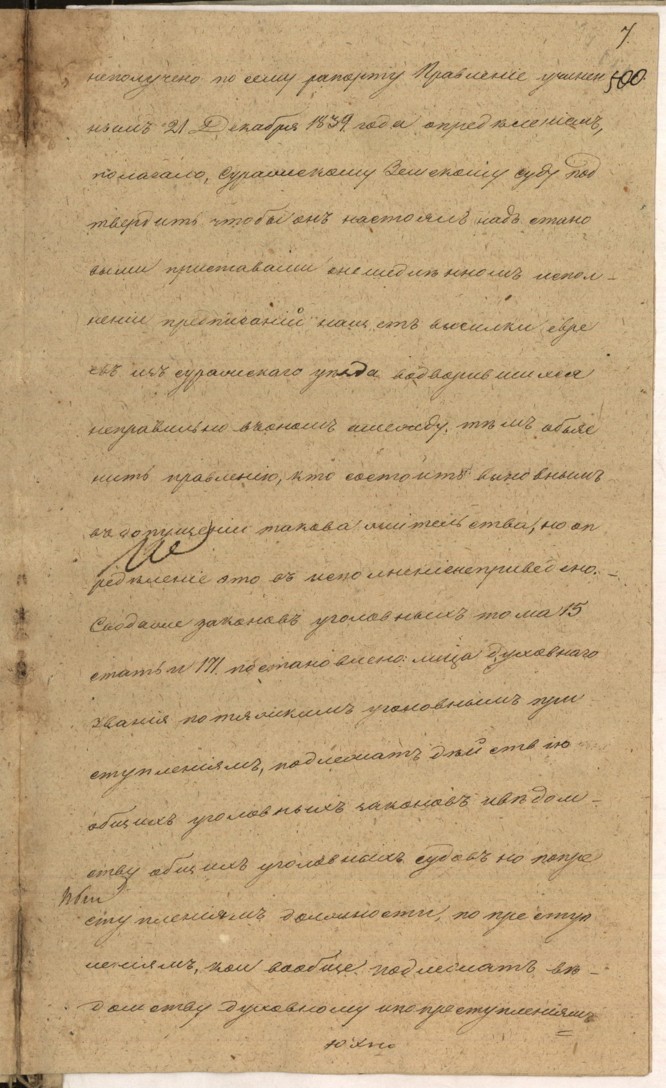 7
500
неполучено по сему рапорту Правленіе учинен
нымъ 21 Декабря 1839 года опредѣленіемъ,
полагало, Суражскому Земскому суду под
твердить чтобы онъ настоялъ надъ стано
выми приставами онемедлѣнномъ испол-
неніи предписаній нащетъ высилки евре
евъ изъ суражскаго уѣзда водворившихся
неправильно въономъ амежду тѣмъ объяс
нить правленію, кто состоитъ виновнымъ
въдопущеніи такова жительства, но оп
редѣленіе это въ исполненіе неприведено.
Сводомъ законовъ уголовныхъ тома 15
статьи 171 постановлено: лица духовнаго
званія потяжкимъ уголовнымъ при
ступленіямъ, подлежатъ дѣйствію
общихъ уголовныхъ законовъ ивѣдом-
ству общихъ уголовныхъ судовъ но попре
ступленіямъ должности, по преступ
леніямъ, кои вообще подлежатъ вѣ-
домству духовному ипопреступленіямъ